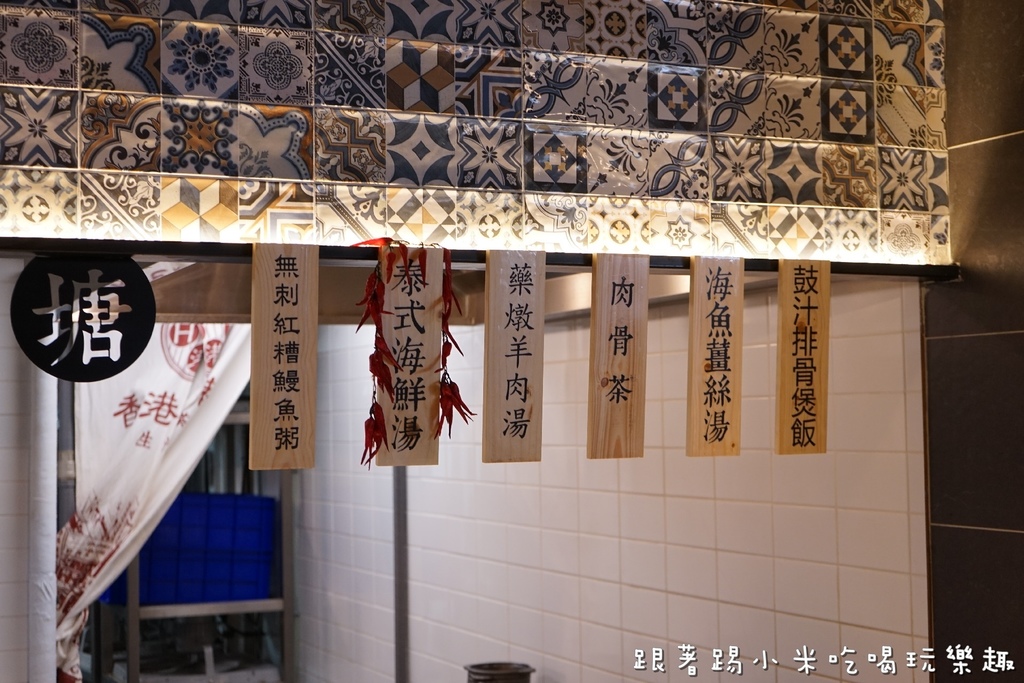 塘
香港
生
無刺紅糟鰻魚粥
泰式海鮮湯
藥燉羊肉湯
肉骨茶
海魚薑絲湯
鼓汁排骨煲飯
跟著踢小米吃喝玩樂趣